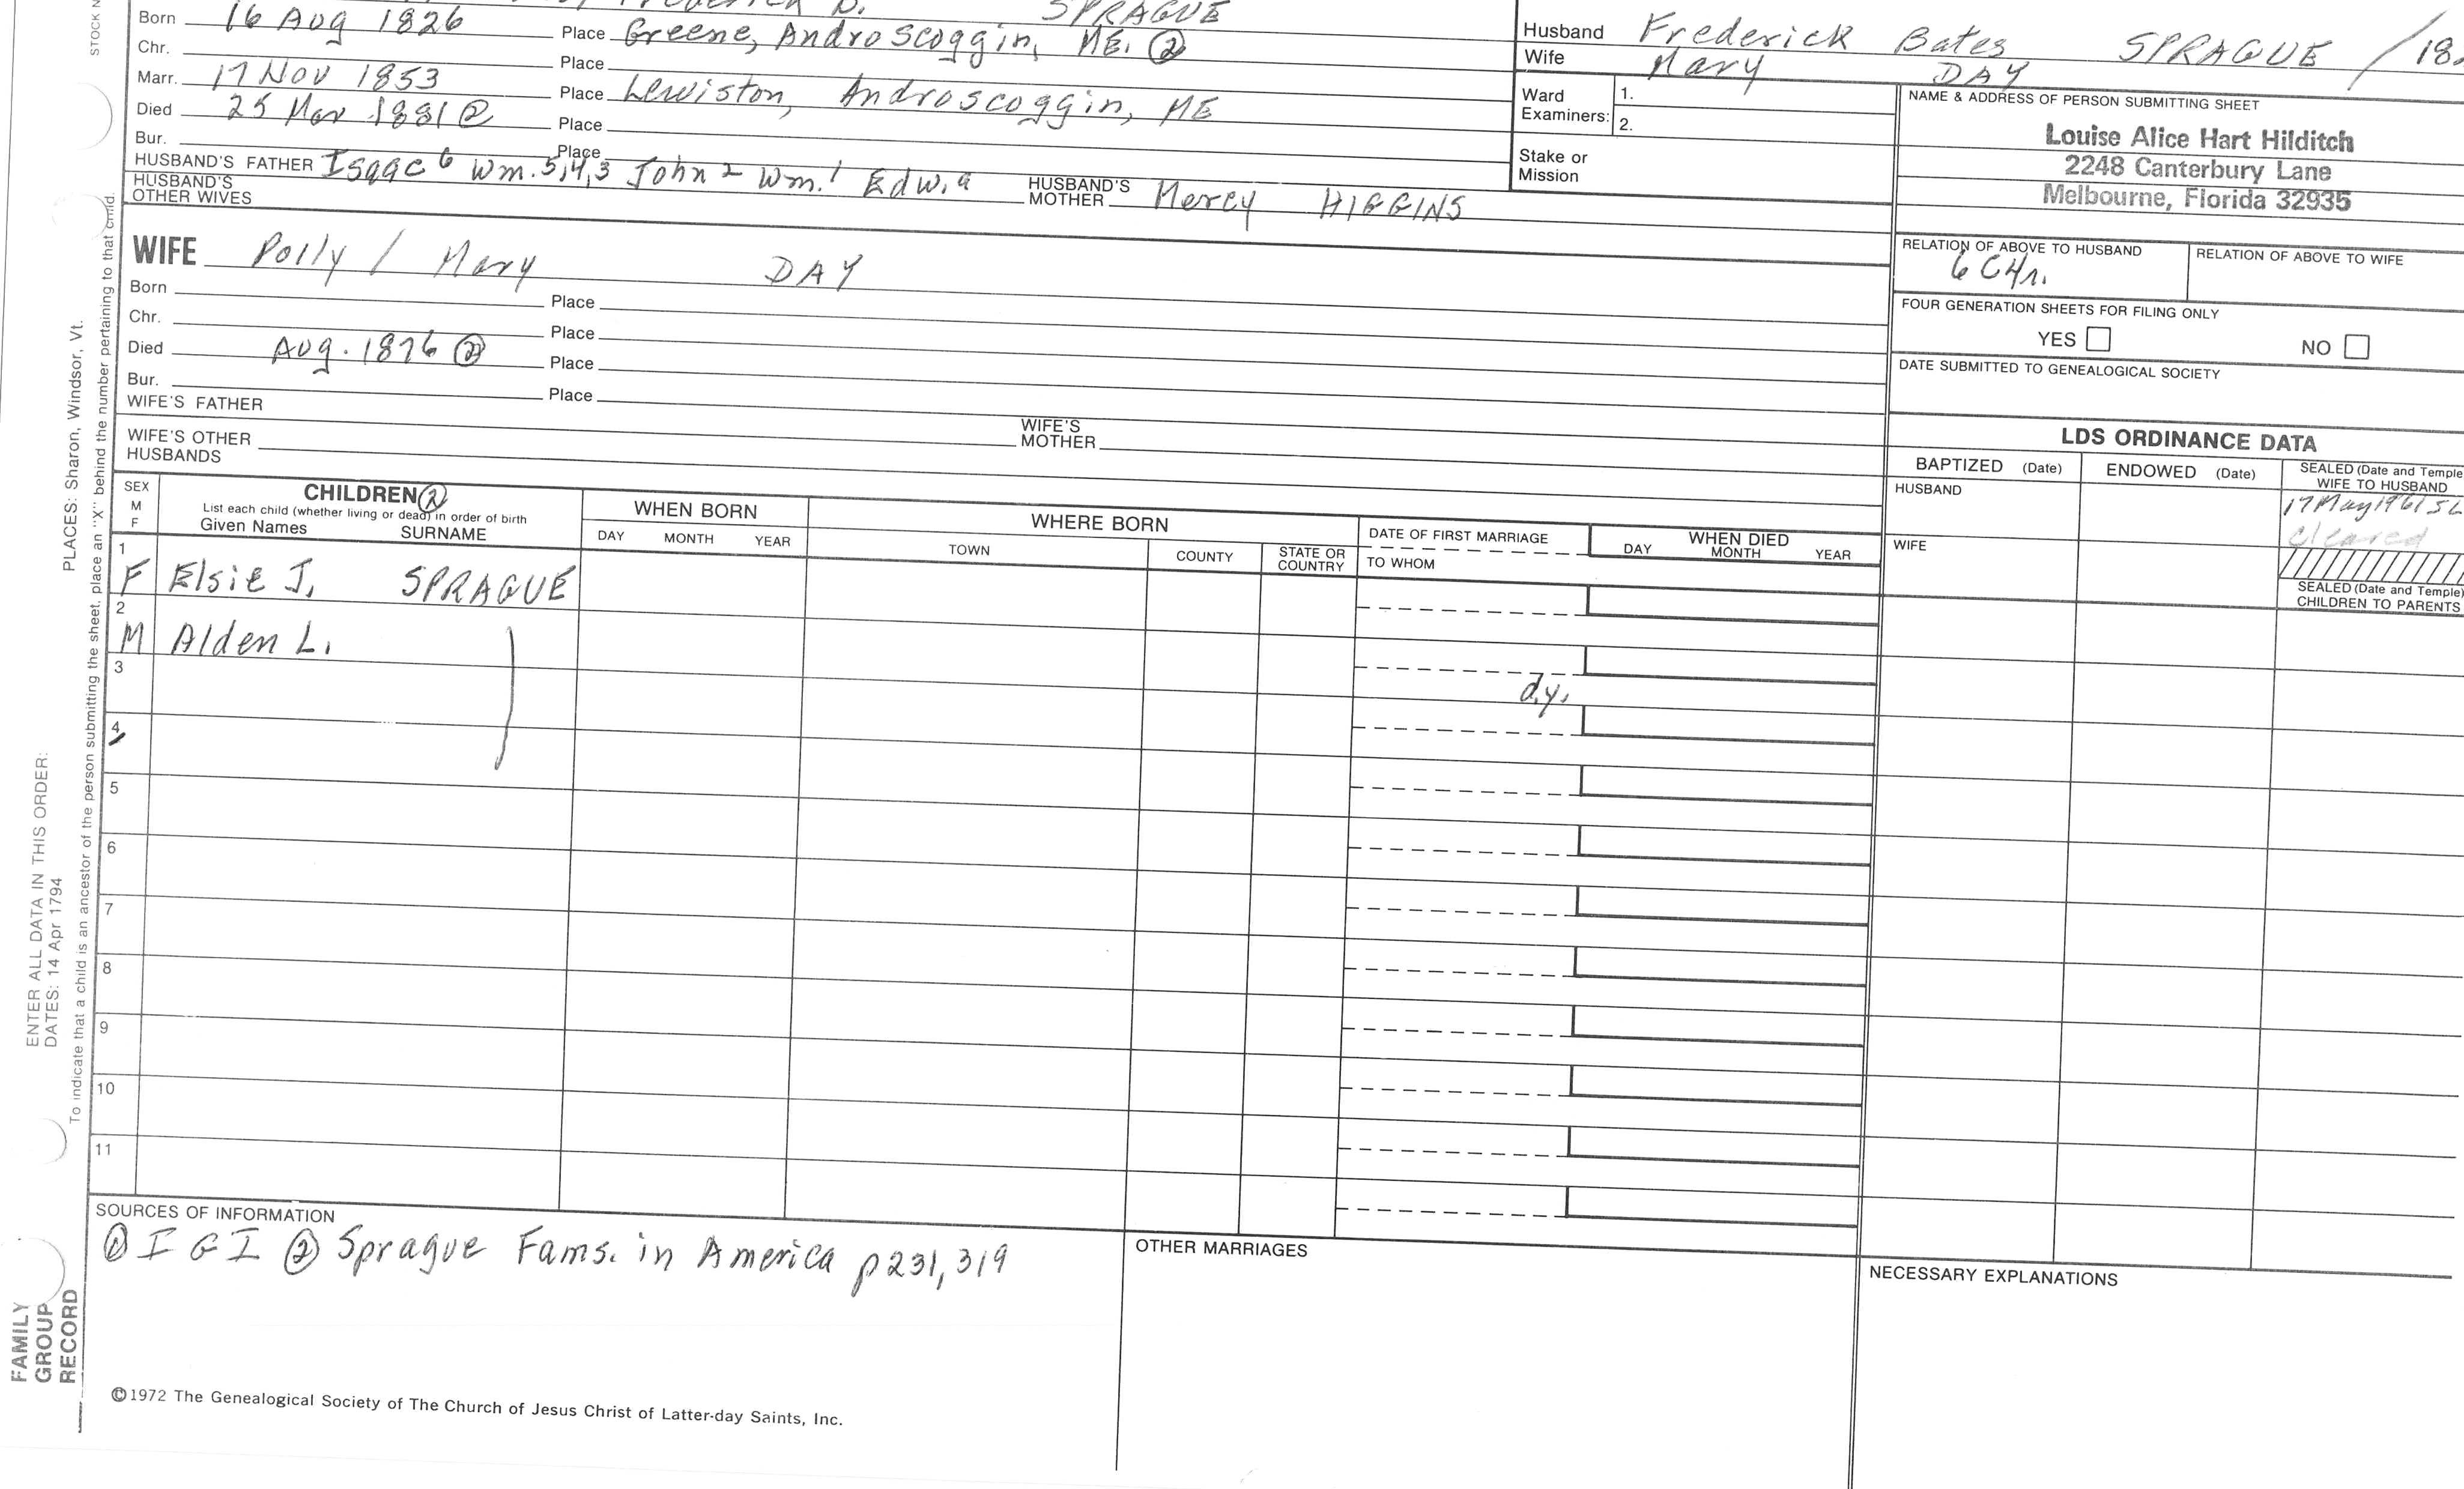 SPRAGUE
Born 16 Aug 1826 Place Greene, Androscoggin, ME. ②
Chr. Place
Marr. 17 Nov 1853 Place Lewiston, Androscoggin, ME
Died 25 Mar 1881 ② Place
Bur. Place
HUSBAND'S FATHER Isaac 6 Wm. 5,4,3 John 2 Wm. 1 Edw. a HUSBAND'S MOTHER Mercy HIGGINS
HUSBAND'S OTHER WIVES
Husband Frederick Bates SPRAGUE / 18
Wife Mary DAY
Ward Examiners: 1.
2.
Stake or Mission
NAME & ADDRESS OF PERSON SUBMITTING SHEET
Louise Alice Hart Hilditch
2248 Canterbury Lane
Melbourne, Florida 32935
RELATION OF ABOVE TO HUSBAND RELATION OF ABOVE TO WIFE
6C4r.
FOUR GENERATION SHEETS FOR FILING ONLY
YES NO
DATE SUBMITTED TO GENEALOGICAL SOCIETY
WIFE Polly / Mary DAY
Born Place
Chr. Place
Died Aug. 1876 ② Place
Bur. Place
WIFE'S FATHER WIFE'S MOTHER
WIFE'S OTHER HUSBANDS
LDS ORDINANCE DATA
BAPTIZED (Date) ENDOWED (Date) SEALED (Date and Temple) WIFE TO HUSBAND
HUSBAND 17 May 1961 SL
Cleared
WIFE
SEALED (Date and Temple) CHILDREN TO PARENTS
SEX M F
CHILDREN ②
List each child (whether living or dead) in order of birth
Given Names SURNAME
WHEN BORN
DAY MONTH YEAR
WHERE BORN
TOWN COUNTY STATE OR COUNTRY
DATE OF FIRST MARRIAGE
TO WHOM
WHEN DIED
DAY MONTH YEAR
1
F Elsie J. SPRAGUE
2
M Alden L.
d.y.
3
4
5
6
7
8
9
10
11
SOURCES OF INFORMATION
① I G I ② Sprague Fams. in America p231, 319
OTHER MARRIAGES
NECESSARY EXPLANATIONS
©1972 The Genealogical Society of The Church of Jesus Christ of Latter-day Saints, Inc.
STOCK N
PLACES: Sharon, Windsor, Vt.
To indicate that a child is an ancestor of the person submitting the sheet, place an "X" behind the number pertaining to that child.
ENTER ALL DATA IN THIS ORDER:
DATES: 14 Apr 1794
FAMILY
GROUP
RECORD